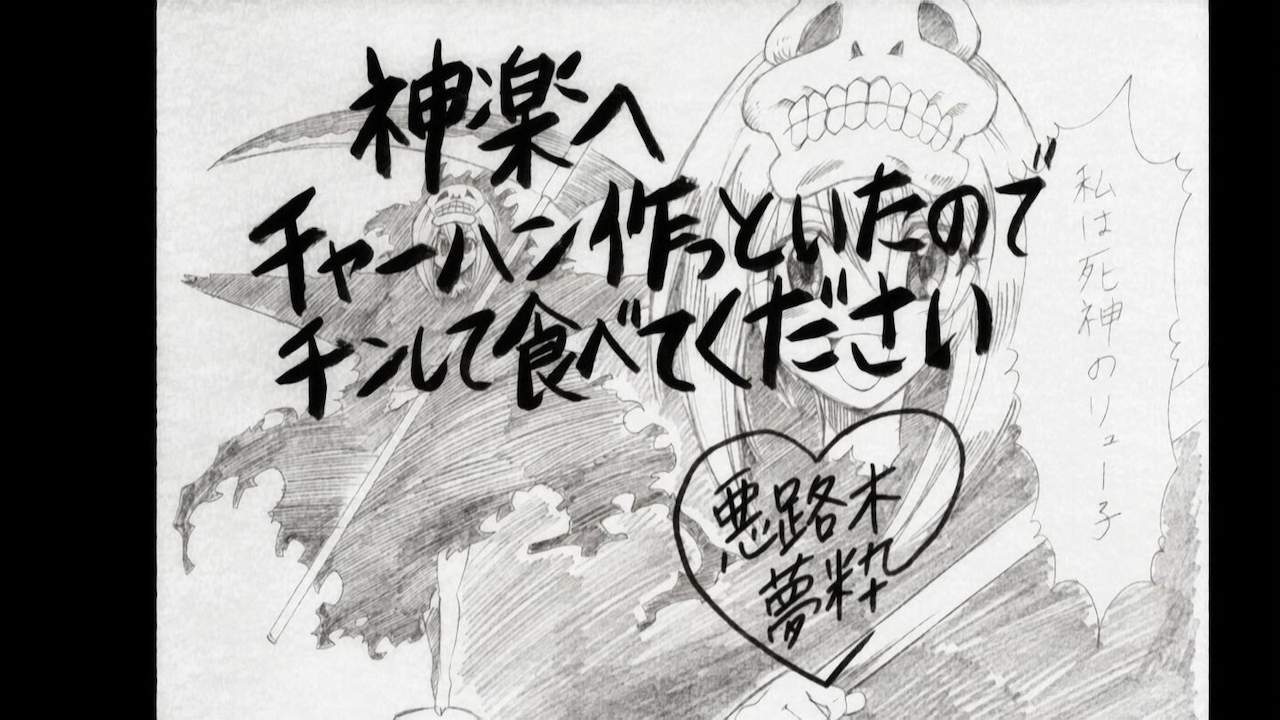 神楽へ
チャーハン作っといたので
チンして食べてください
悪路木
夢粋
私は死神のリュー子